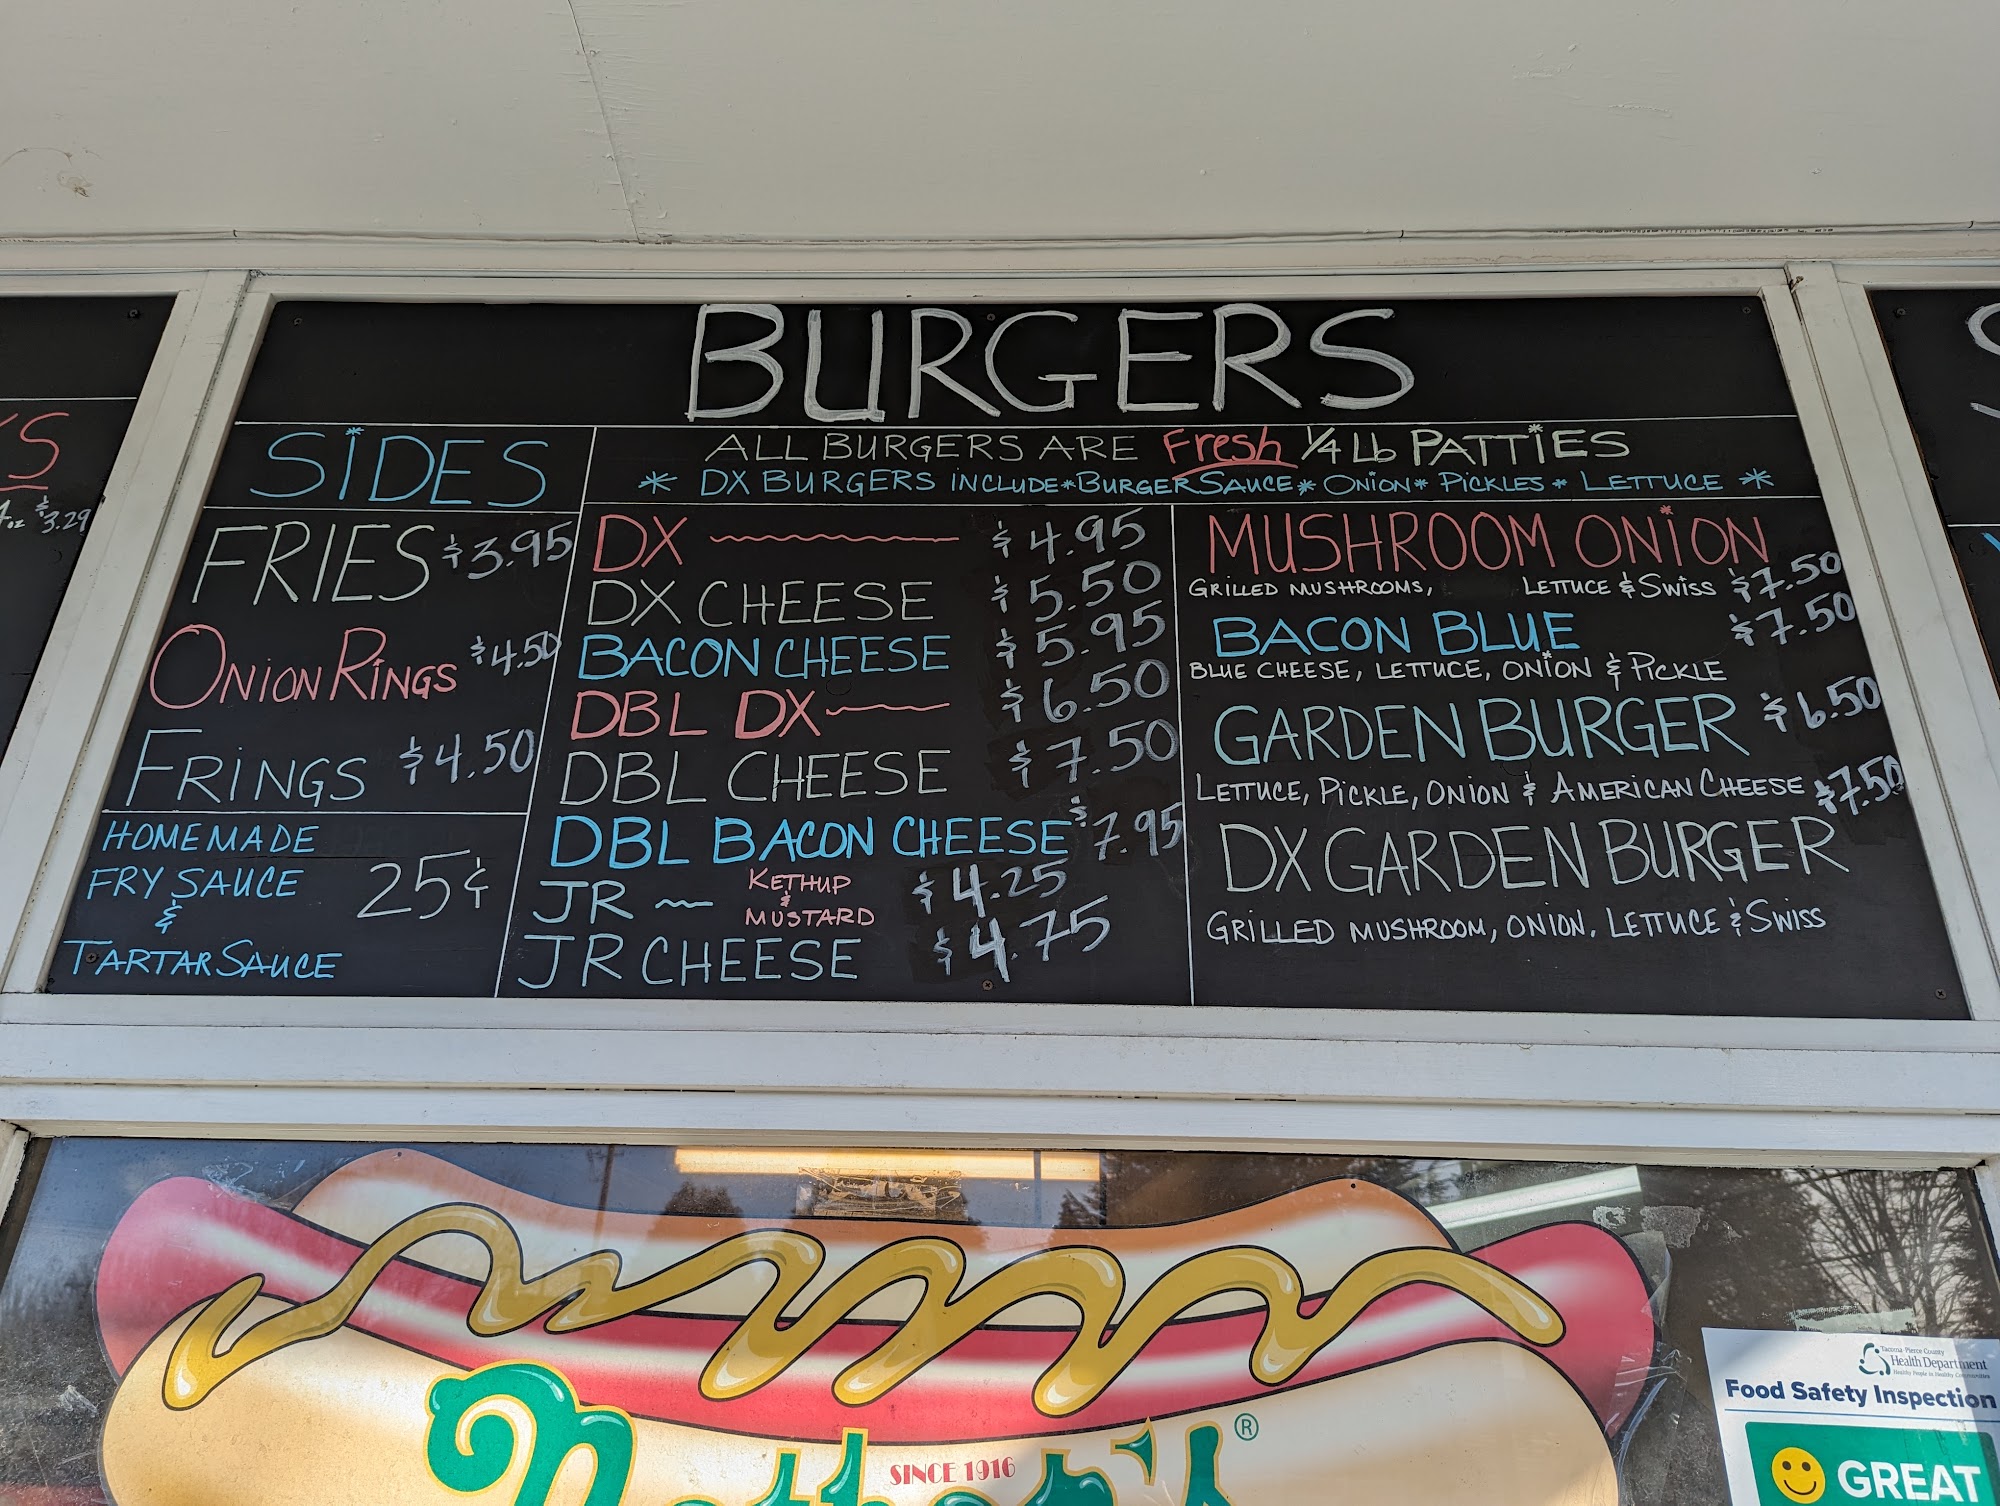 BURGERS
SIDES
ALL BURGERS ARE Fresh 1/4 Lb PATTIES
* DX BURGERS INCLUDE * BURGER SAUCE * ONION * PICKLES * LETTUCE *
FRIES $3.95
ONION RINGS $4.50
FRINGS $4.50
HOMEMADE
FRY SAUCE
&
TARTAR SAUCE
25¢
DX $4.95
DX CHEESE $5.50
BACON CHEESE $5.95
DBL DX $6.50
DBL CHEESE $7.50
DBL BACON CHEESE $7.95
JR KETHUP & MUSTARD $4.25
JR CHEESE $4.75
MUSHROOM ONION
GRILLED MUSHROOMS, LETTUCE & SWISS $7.50
BACON BLUE $7.50
BLUE CHEESE, LETTUCE, ONION & PICKLE
GARDEN BURGER $6.50
LETTUCE, PICKLE, ONION & AMERICAN CHEESE $7.50
DX GARDEN BURGER
GRILLED MUSHROOM, ONION, LETTUCE & SWISS
$3.29
SINCE 1916
®
Tacoma-Pierce County
Health Department
Healthy People in Healthy Communities
Food Safety Inspection
GREAT